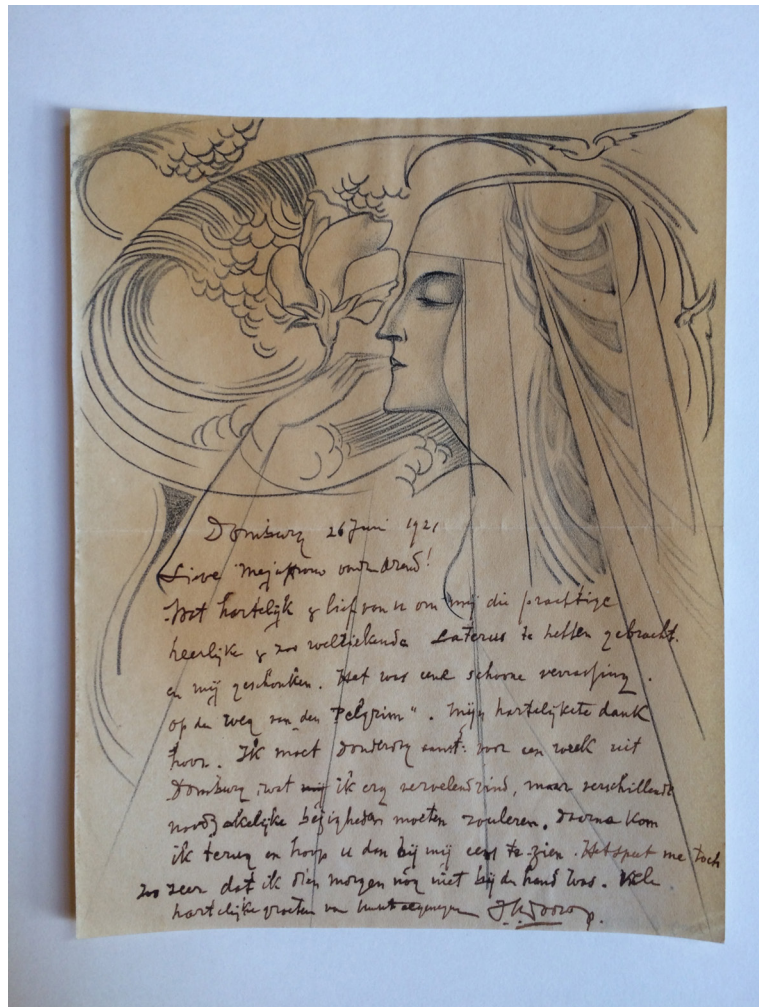 Domburg 26 Juni 1921
Lieve Mejuffrouw
Wat hartelijk & lief van u om mij die prachtige
heerlijke & zoo welriekende te hebben gebracht.
en mij geschonken. Het was eene schoone verrassing.
op den weg van den "Pelgrim". Mijn hartelijkste dank
hoor. Ik moet Donderdag aanst: voor een week uit
Domburg, wat ik erg vervelend vind, maar verschillende
noodzakelijke bezigheden moeten Daarna kom
ik terug en hoop u dan bij mij eens te zien. Het spijt me toch
zoo zeer dat ik dien morgen nog niet bij de hand was. Vele
hartelijke groeten van JThToorop.